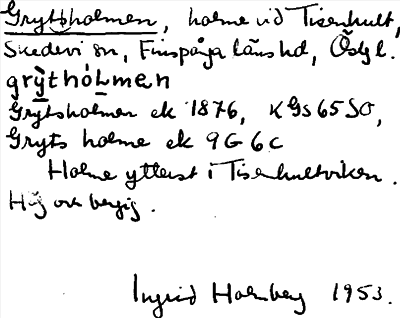 Grytsholmen, holme vid Tisenhult,
Skedevi sn, Finspånga läns hd, Östgl.
grỳthól̲men
Grytsholmen ek 1876, KGs 65 SO,
Gryts holme ek 9G 6c
Holme ytterst i Tisenhultviken.
Hög och bergig.
Ingrid Holmberg 1953.